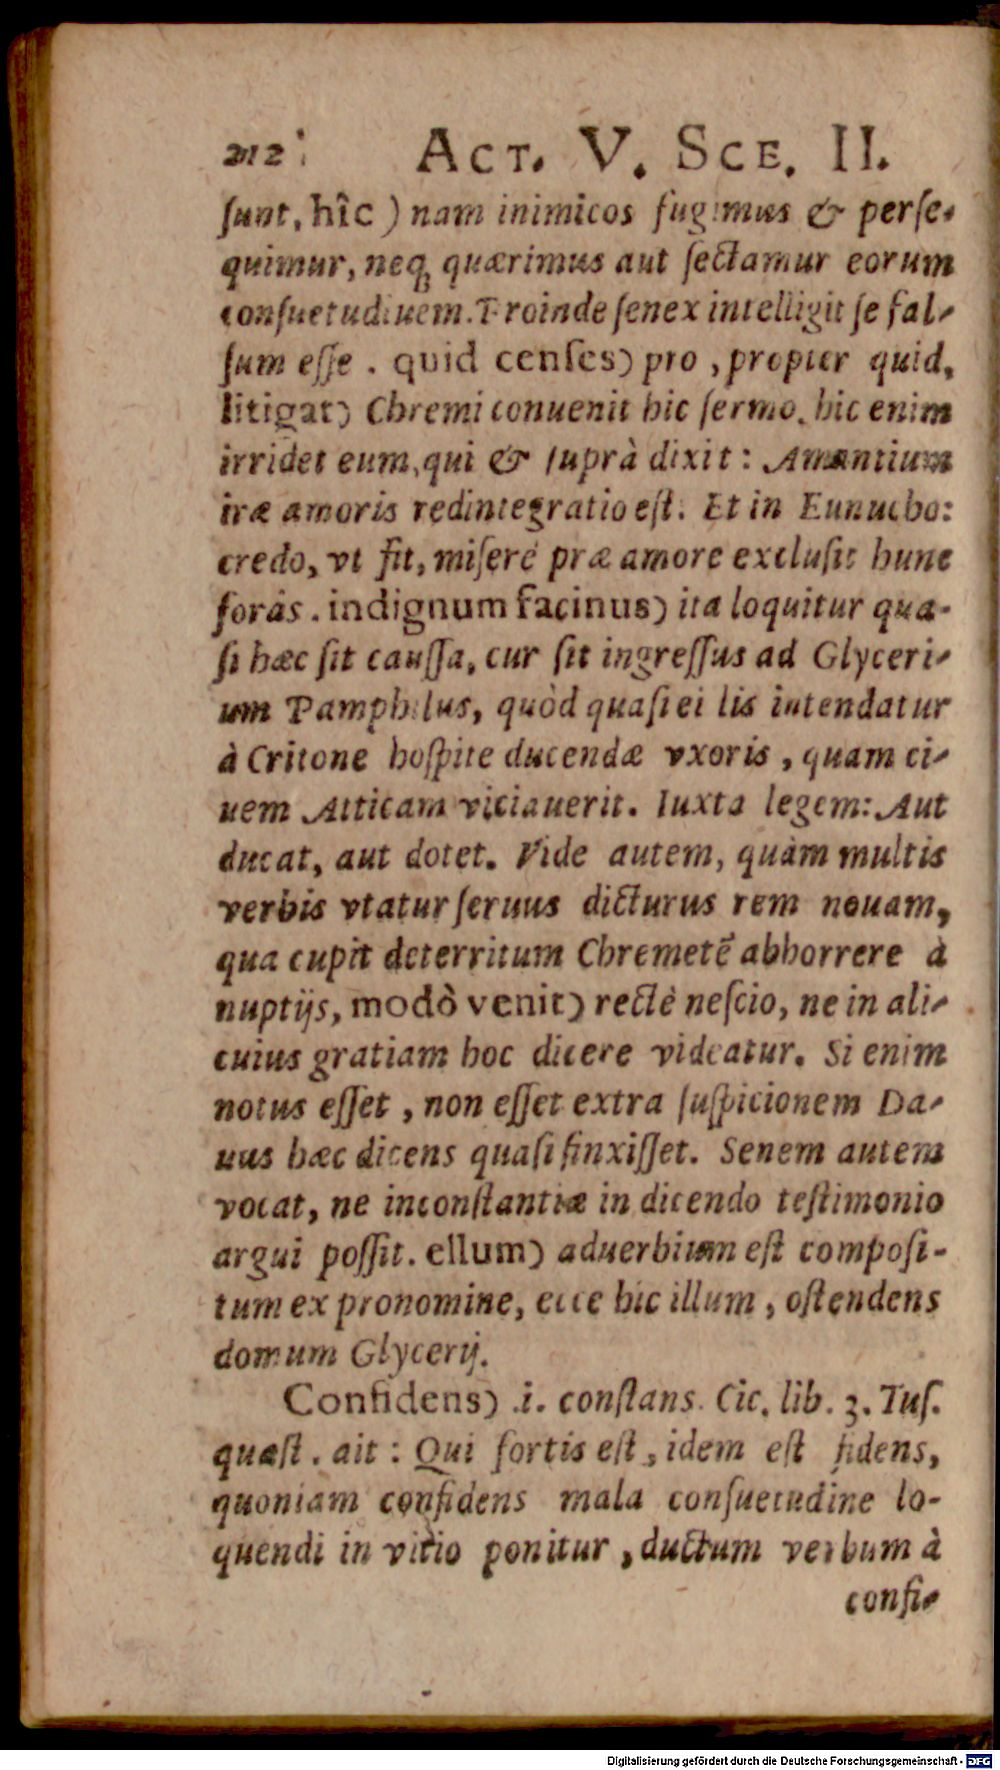 212 ACT. V. SCE. II.
ſunt, hîc ) nam inimicos fugimus & perſe-
quimur, neq; quærimus aut ſectamur eorum
conſuetudiuem. Proinde ſenex intelligit ſe fal-
ſum eſſe . quid cenſes) pro , propter quid,
litigat) Chremi conuenit hic ſermo. hic enim
irridet eum, qui & ſuprà dixit : Amantium
iræ amoris redintegratio eſt. Et in Eunucho:
credo, vt fit, miſerè præ amore excluſit hunc
foràs . indignum facinus) ita loquitur qua-
ſi hæc ſit cauſſa, cur ſit ingreſſus ad Glyceri-
um Pamphilus, quòd quaſi ei lis intendatur
à Critone hoſpite ducendæ vxoris , quam ci-
uem Atticam viciauerit. Iuxta legem: Aut
ducat, aut dotet. Vide autem, quàm multis
verbis vtatur ſeruus dicturus rem nouam,
qua cupit deterritum Chremetē abhorrere à
nuptijs, modò venit) rectè neſcio, ne in ali-
cuius gratiam hoc dicere videatur. Si enim
notus eſſet , non eſſet extra ſuſpicionem Da-
uus hæc dicens quaſi finxiſſet. Senem autem
vocat, ne inconſtantiæ in dicendo teſtimonio
argui poſſit. ellum) aduerbium eſt compoſi-
tum ex pronomine, ecce hic illum , oſtendens
domum Glycerij.
Confidens) .i. conſtans. Cic. lib. 3. Tuſ.
quæſt . ait : Qui fortis eſt , idem eſt fidens,
quoniam confidens mala conſuetudine lo-
quendi in vitio ponitur , ductum verbum à
confi-
Digitalisierung gefördert durch die Deutsche Forschungsgemeinschaft - DFG